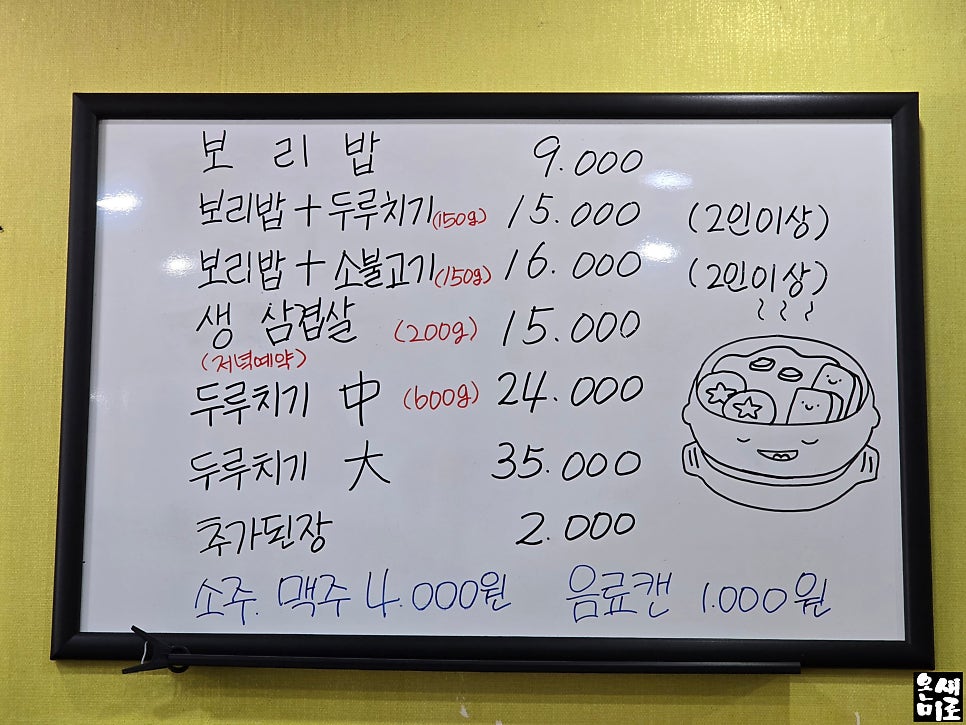 보리밥 9.000
보리밥+두루치기(150g) 15.000 (2인이상)
보리밥+소불고기(150g) 16.000 (2인이상)
생 삼겹살 (200g) 15.000
(저녁예약)
두루치기 中 (600g) 24.000
두루치기 大 35.000
추가된장 2.000
소주. 맥주 4.000원 음료캔 1.000원
온새미로